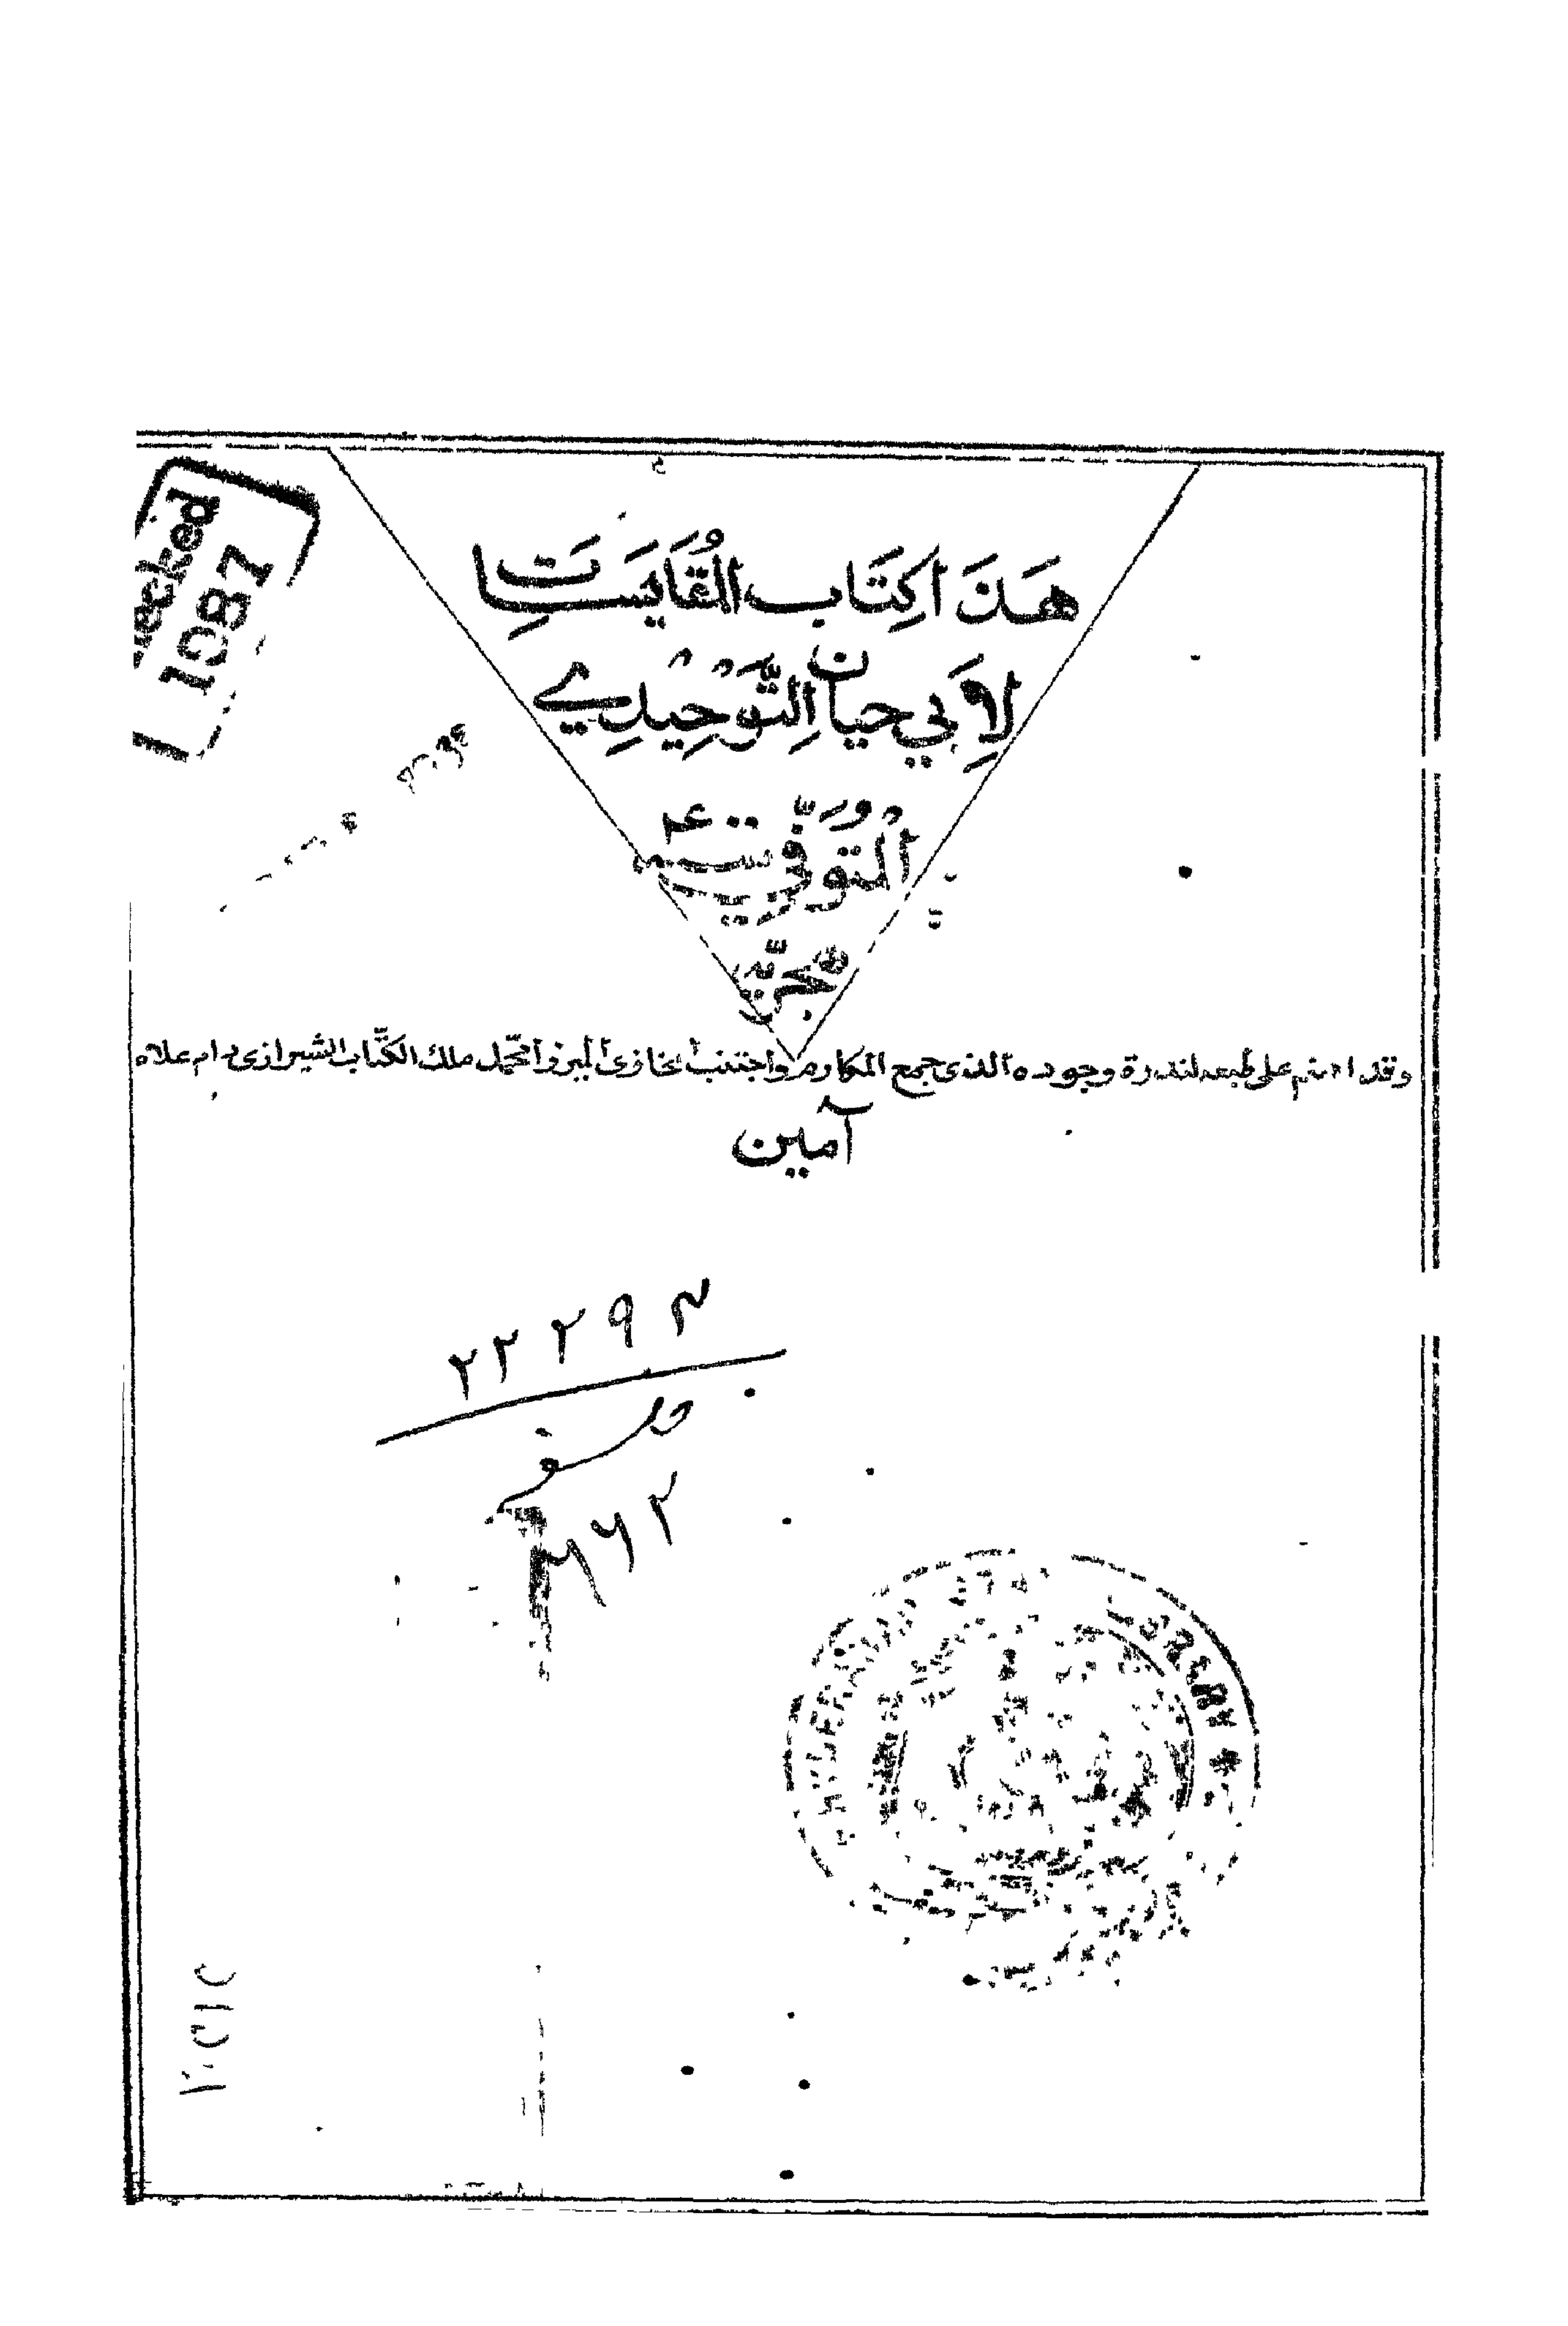 هَذَا كِتَاب المُقَايَسَاتِ
لِأَبِي حيان التَّوْحِيدِي
المُتَوَفّى سنة
هجريّة
وقد اهتم على طبعه لندرة وجوده الذى جمع المكارم واجتنب المخازى الميرزا محمّد ملك الكتّاب الشيرازى دام علاه
آمين
checked
1987
۲۲۲۹۳
فلسفه
۲۶۲
LIBRARY